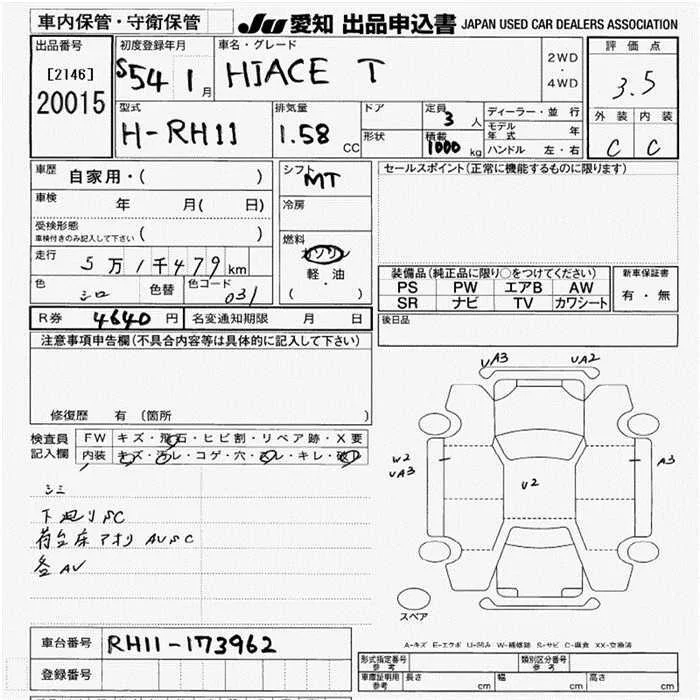 車内保管・守衛保管 JU 愛知 出品申込書 JAPAN USED CAR DEALERS ASSOCIATION
出品番号
[2146]
20015
初度登録年月
S54 1月
車名・グレード
HIACE T
2WD
・
4WD
評価点
3.5
外装 内装
C C
型式
H-RH11
排気量
1.58 CC
ドア
形状
定員
3 人
積載
1000 kg
ディーラー・並行
モデル年式 年
ハンドル 左・右
車歴 自家用・( )
車検 年 月( 日)
受検形態
車検付きのみ記入して下さい ( )
走行 5万1千479km
色 シロ 色替 色コード 031
シフト
MT
冷房
燃料
ガソリン
軽・油
( )
セールスポイント(正常に機能するものに限ります)
装備品(純正品に限り○をつけてください)
PS PW エアB AW
SR ナビ TV カワシート
新車保証書
有・無
後日品
R券 4640円 名変通知期限 月 日
注意事項申告欄(不具合内容等は具体的に記入して下さい)
修復歴 有 (箇所 )
検査員記入欄
FW キズ・飛石・ヒビ割・リペア跡・X要
内装 キズ・汚レ・コゲ・穴・スレ・キレ・破レ
シミ
下廻りSC
荷台床アオリ AVSC
各AV
UA3 UA2
W2
UA3
U2
A3
スペア
A-キズ E-エクボ U-凹み W-補修跡 S-サビ C-腐食 XX-交換済
車台番号 RH11-173962
登録番号
形式指定番号
参考
類別区分番号
参考
車庫証明用
参考
長さ cm 幅 cm 高さ cm